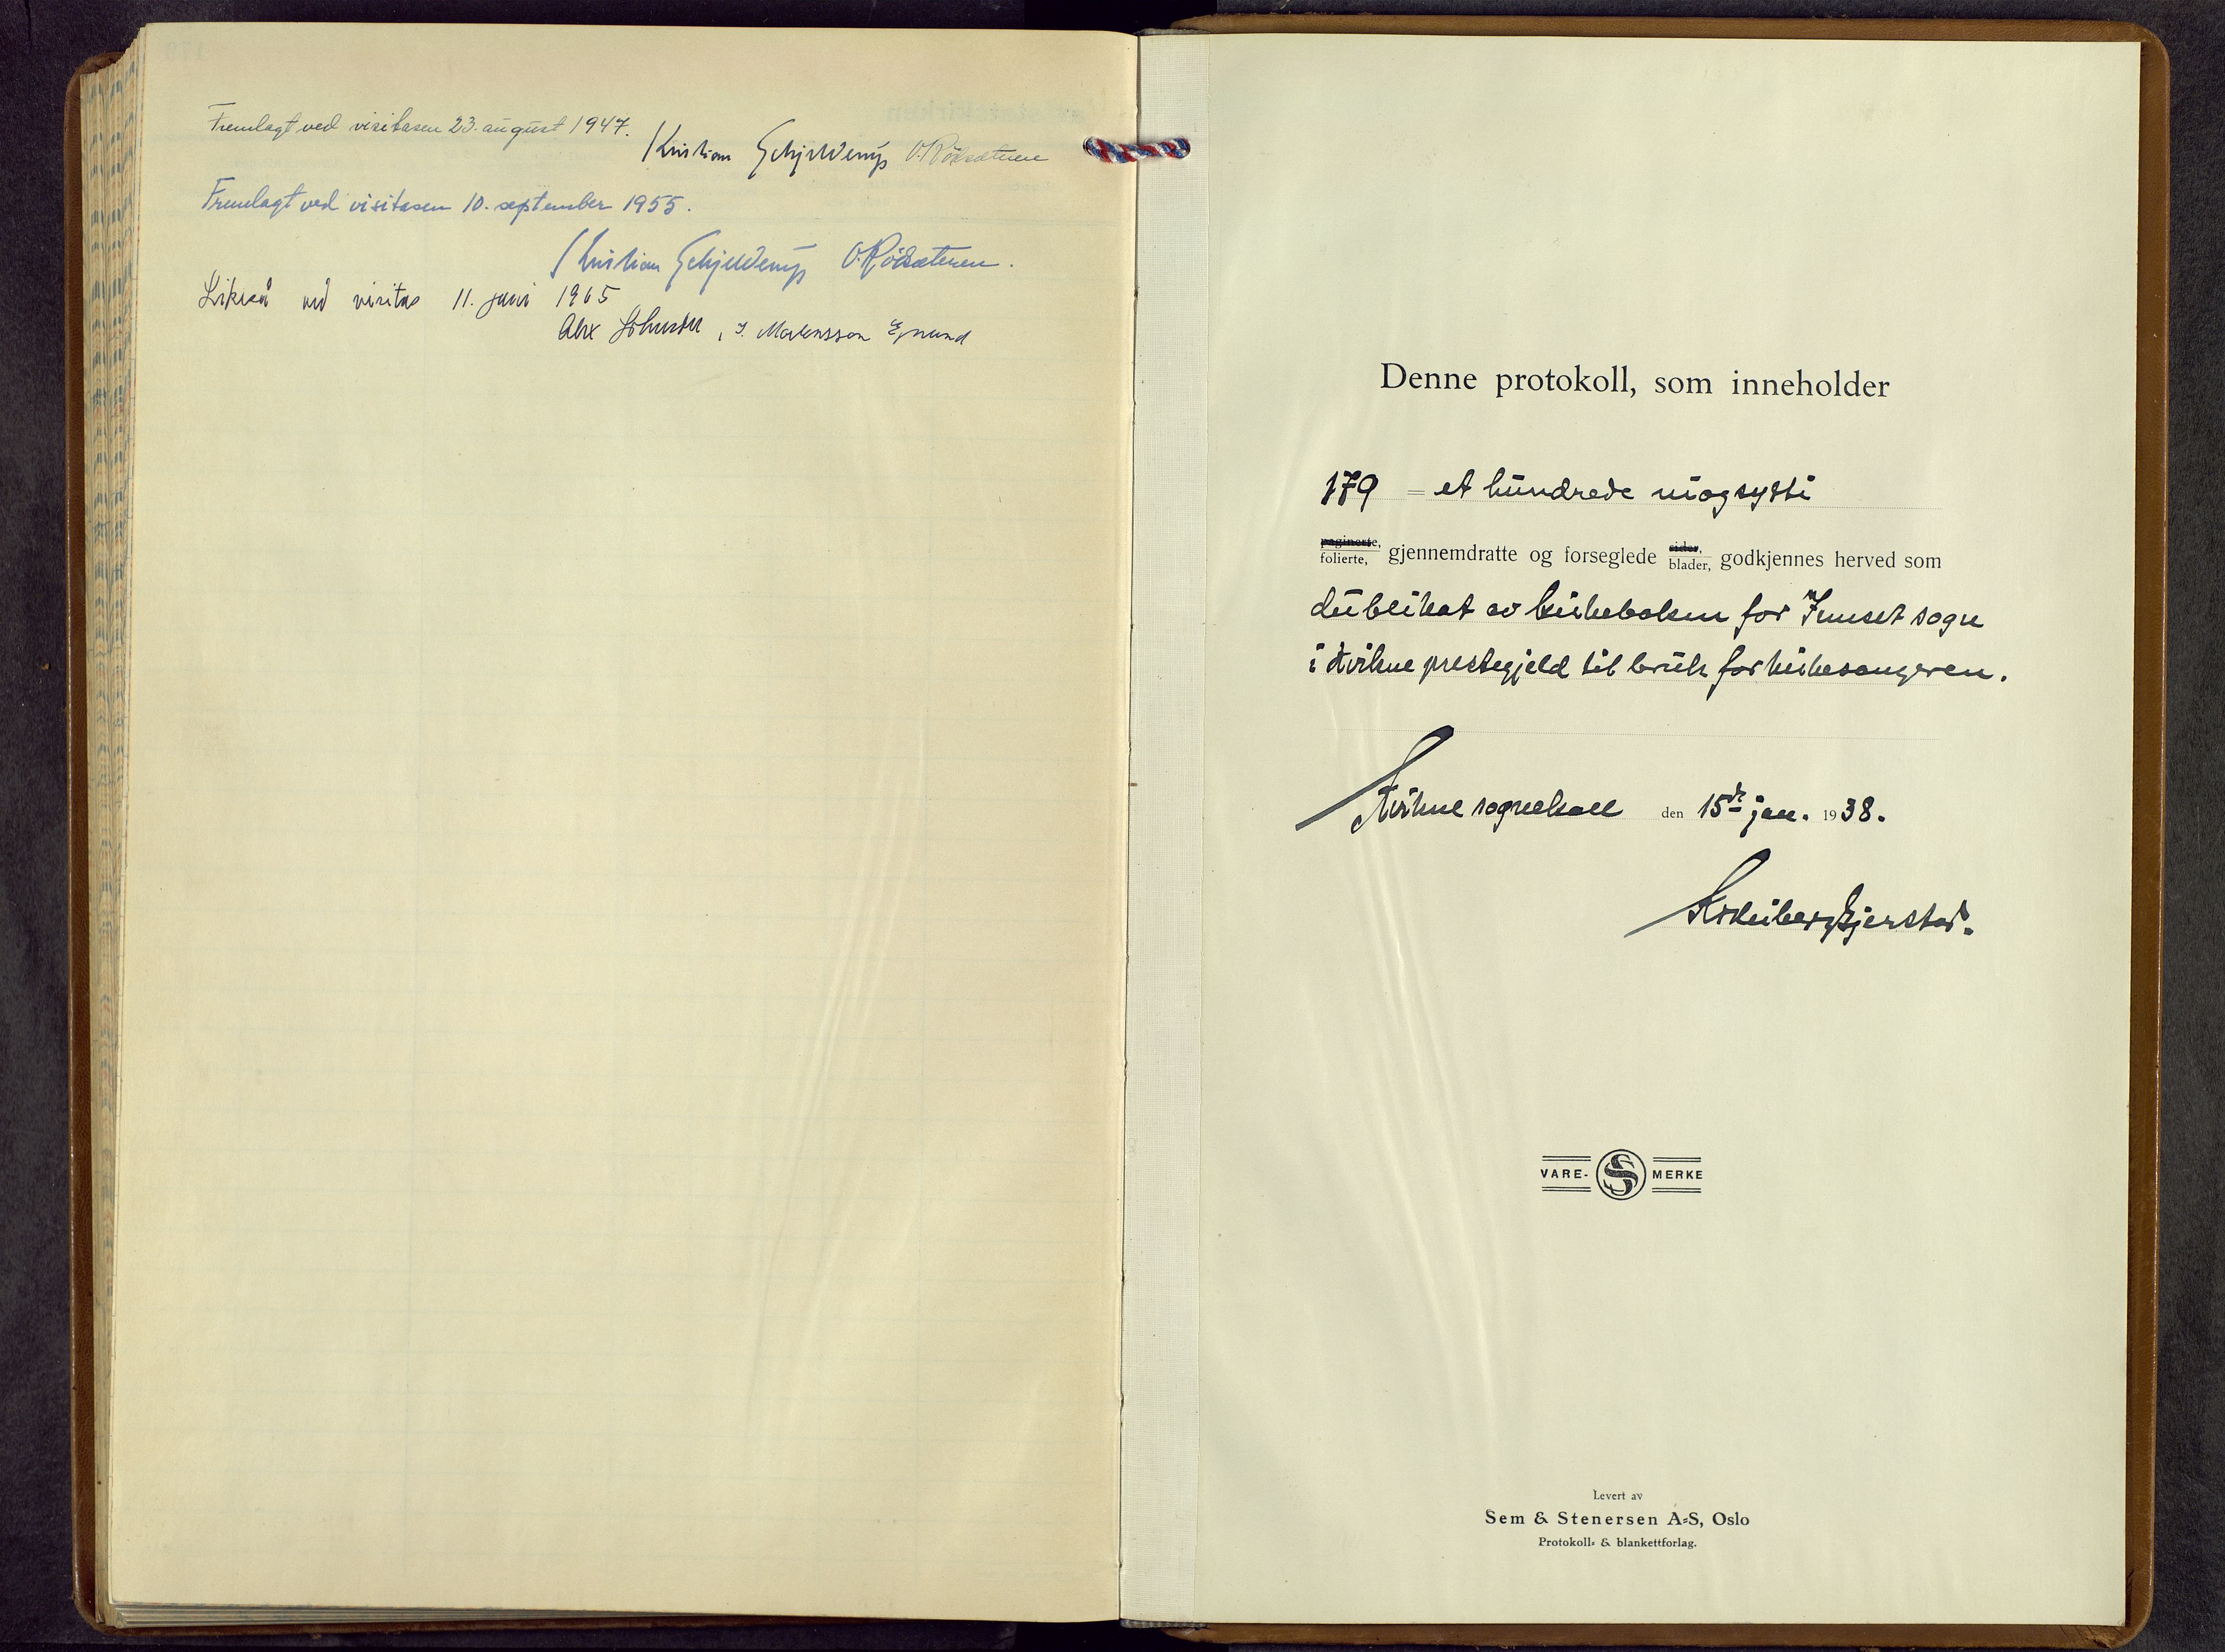 Fremlagt ved visitasen 23. august 1947.
Kristian Schjelderup O. Röksæteren
Fremlagt ved visitasen 10. september 1955.
Kristian Schjelderup O. Röksæteren.
Likeså ved visitas 11. juni 1965
Alex Johnson, Mortensson Egnund
Denne protokoll, som inneholder
179 = et hundrede niogsytti
paginerte,
folierte, gjennemdratte og forseglede sider, blader, godkjennes herved som
dublikat av kirkeboken for Innset sogn
i Kvikne prestegjeld til bruk for kirkesangeren.
Kvikne sognekall den 15de jan. 1938.
VARE- S MERKE
Levert av
Sem & Stenersen A-S, Oslo
Protokoll- & blankettforlag.